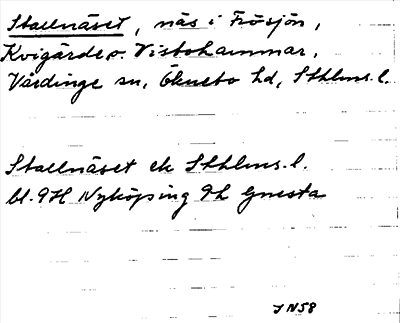 Stallnäset, näs i Frösjön,
Kvigärde o. Visbohammar,
Vårdinge sn, Öknebo hd, Sthlms. l.
Stallnäset ek Sthlms. l.
bl. 9H Nyköping 9h Gnesta
JN58